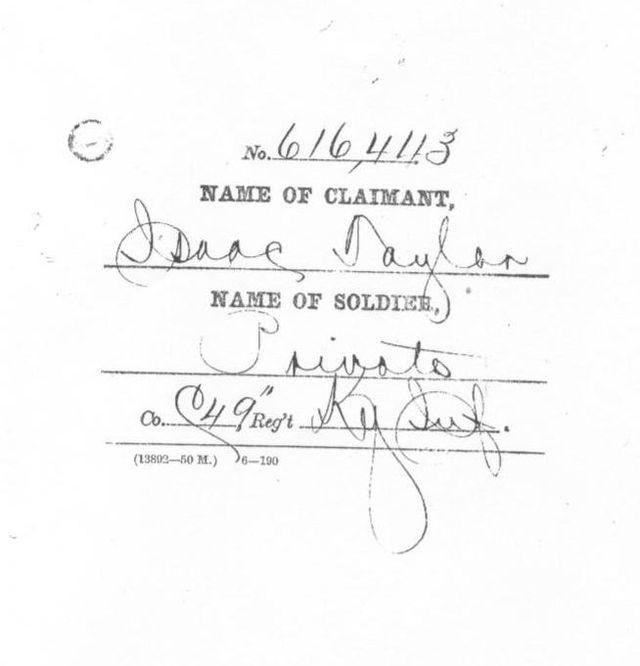 No. 616,413
NAME OF CLAIMANT,
Isaac Taylor
NAME OF SOLDIER,
Private
Co. C 49" Reg't Ky Inf.
(13892—50 M.) 6—190